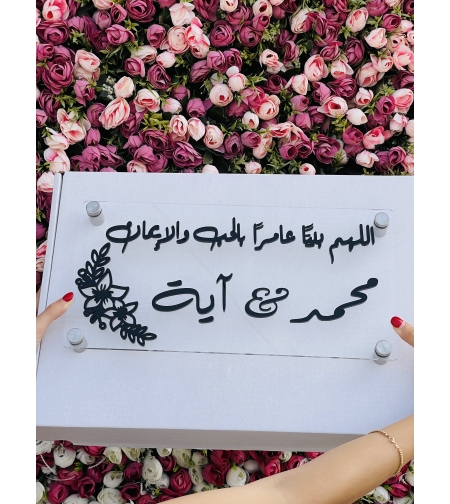 اللهم بيتًا عامرًا بالحب والإيمان
محمد & آية